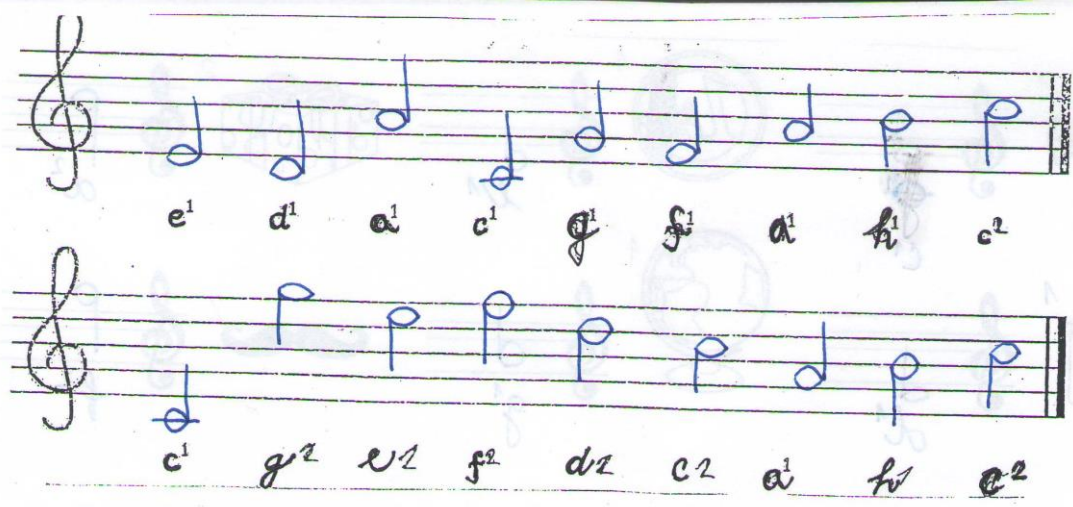 e¹ d¹ a¹ c¹ g¹ f¹ a¹ h¹ c²
c¹ g² e² f² d² c² a¹ h¹ c²